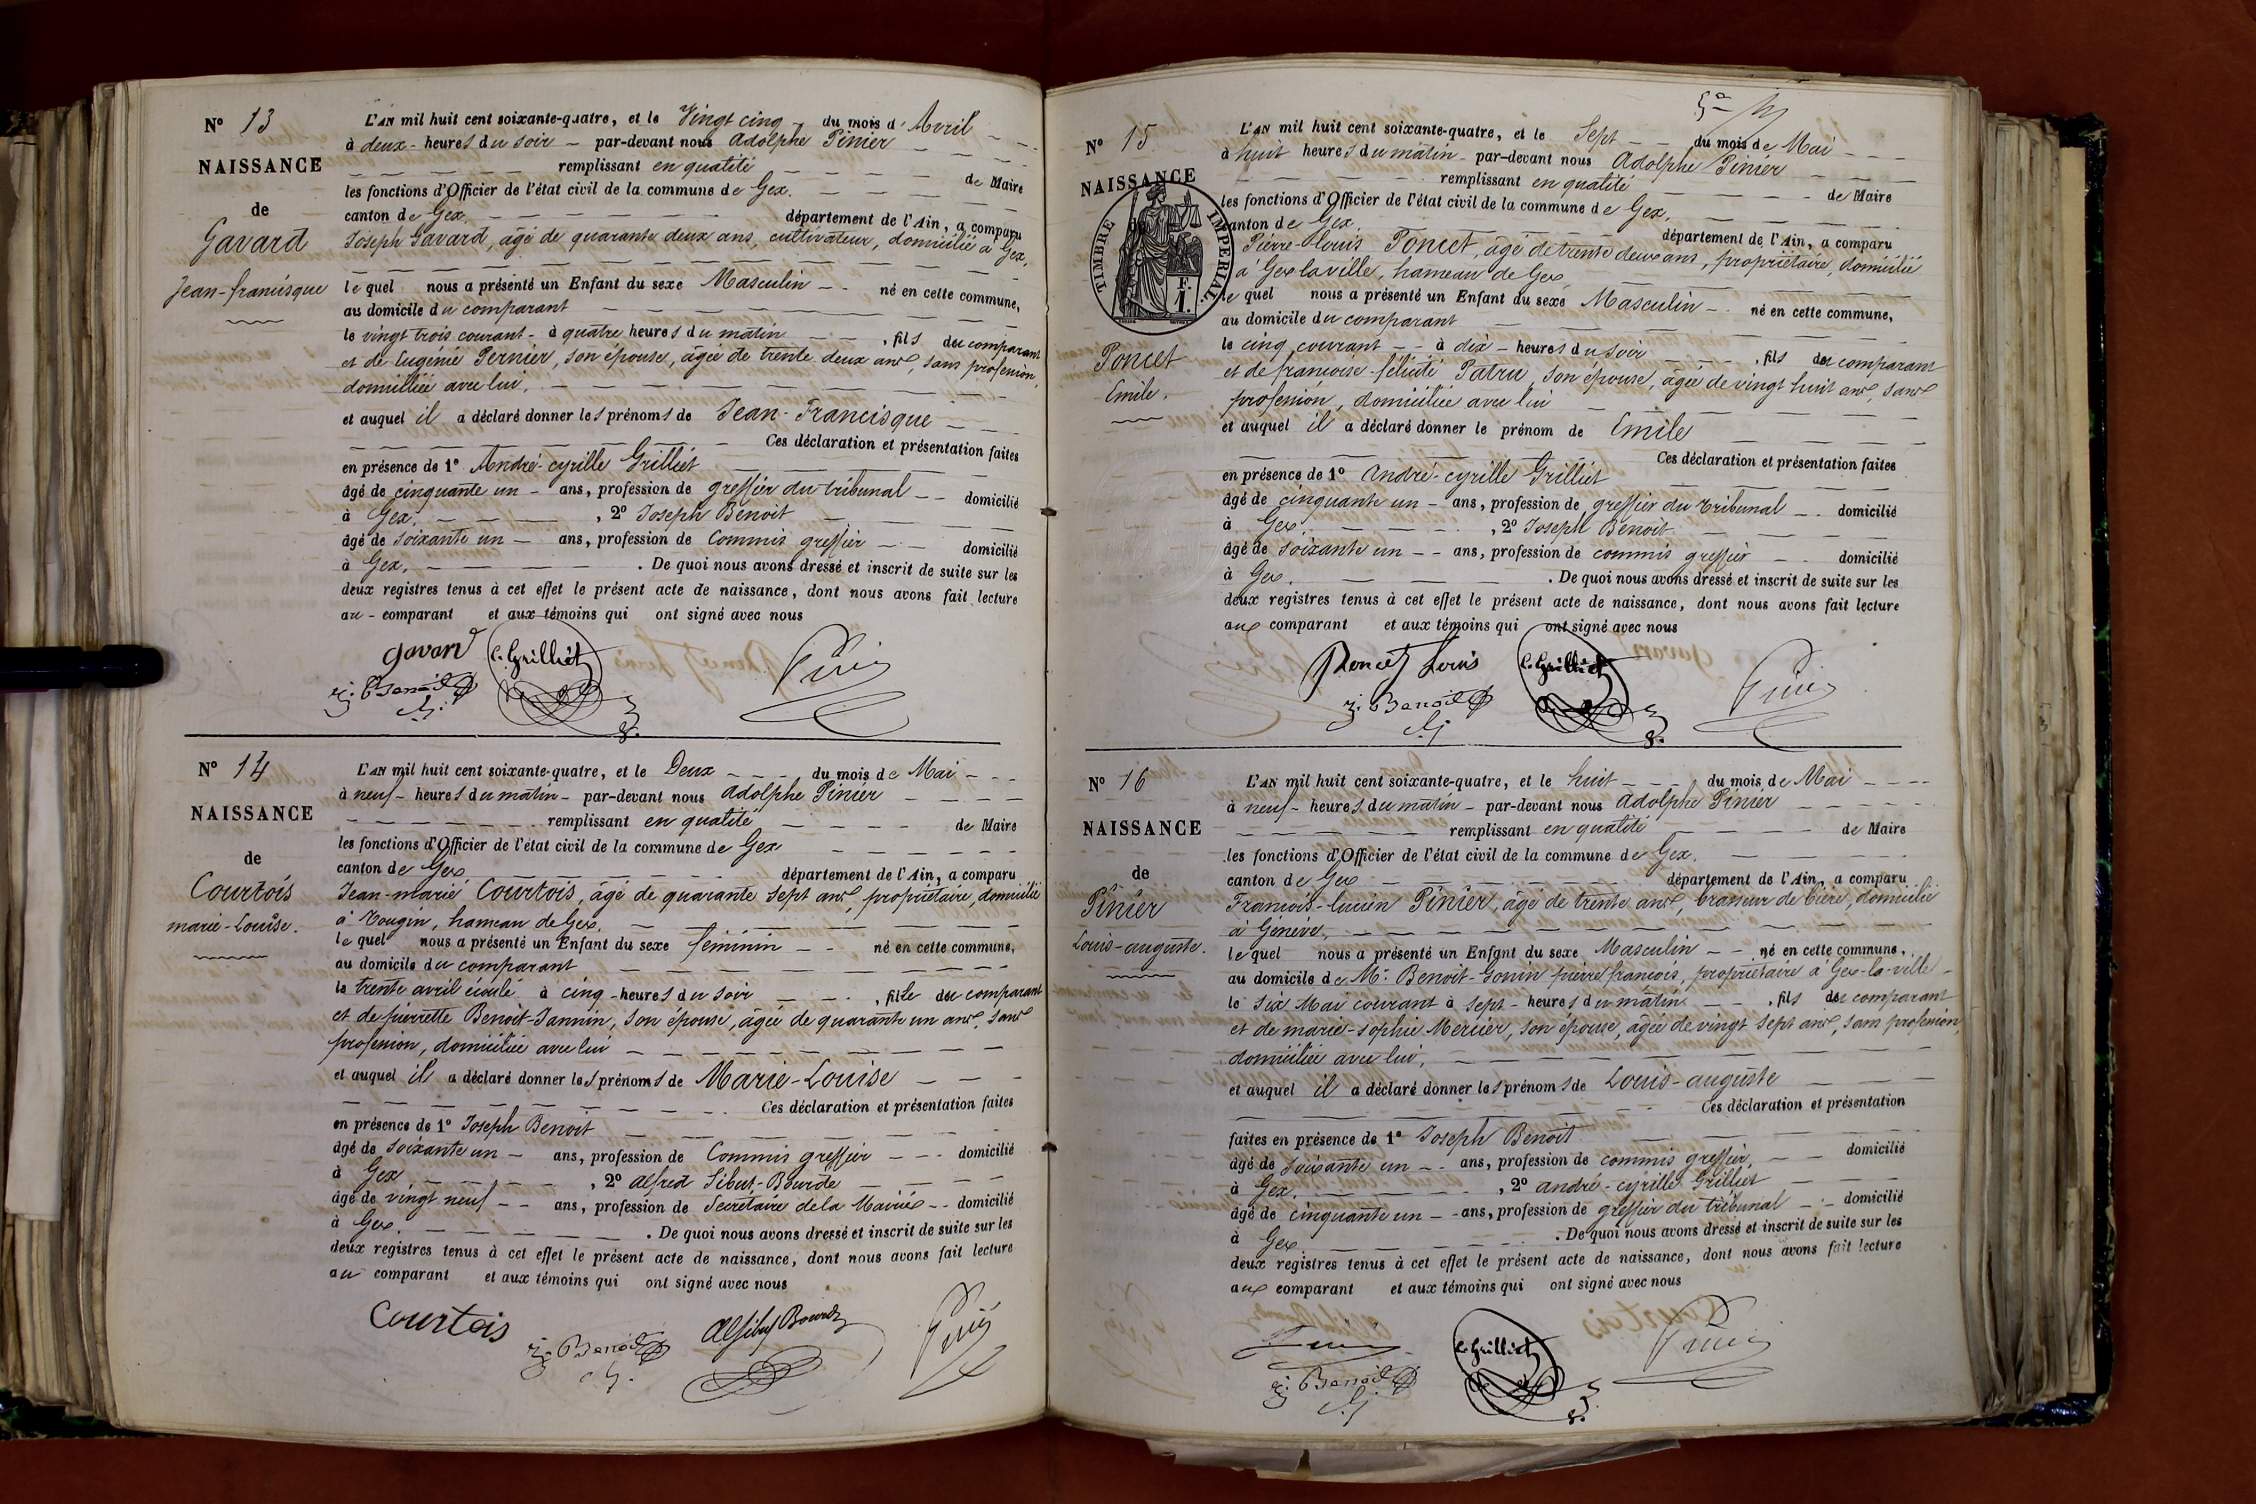 N° 13
NAISSANCE
de
Gavard
Jean-francisque
L'AN mil huit cent soixante-quatre, et le Vingt cinq du mois d'Avril
à deux heures du soir par-devant nous Adolphe Pinier
remplissant en qualité de Maire
les fonctions d'Officier de l'état civil de la commune de Gex.
canton de Gex département de l'Ain, a comparu
Joseph Gavard, âgé de quarante deux ans, cultivateur, domicilié à Gex,
lequel nous a présenté un Enfant du sexe Masculin né en cette commune,
au domicile du comparant
le vingt trois courant à quatre heures du matin, fils du comparant
et de Eugénie Pernier, son épouse, âgée de trente deux ans, sans profession,
domiciliée avec lui,
et auquel il a déclaré donner les prénoms de Jean-Francisque
Ces déclaration et présentation faites
en présence de 1° André-cyrille Grilliet
âgé de cinquante un ans, profession de greffier du tribunal domicilié
à Gex, 2° Joseph Benoit
âgé de soixante un ans, profession de Commis greffier domicilié
à Gex. De quoi nous avons dressé et inscrit de suite sur les
deux registres tenus à cet effet le présent acte de naissance, dont nous avons fait lecture
au comparant et aux témoins qui ont signé avec nous
Gavard C. Grilliet Pinier
J. Benoit
N° 14
NAISSANCE
de
Courtois
marie-Louise.
L'AN mil huit cent soixante-quatre, et le Deux du mois de Mai
à neuf heures du matin par-devant nous Adolphe Pinier
remplissant en qualité de Maire
les fonctions d'Officier de l'état civil de la commune de Gex
canton de Gex département de l'Ain, a comparu
Jean-marie Courtois, âgé de quarante sept ans, propriétaire, domicilié
à Mougin, hameau de Gex,
lequel nous a présenté un Enfant du sexe féminin né en cette commune,
au domicile du comparant
le trente avril écoulé à cinq heures du soir, fille du comparant
et de pierrette Benoit-Jannin, son épouse, âgée de quarante un ans, sans
profession, domiciliée avec lui
et auquel il a déclaré donner les prénoms de Marie-Louise
Ces déclaration et présentation faites
en présence de 1° Joseph Benoit
âgé de soixante un ans, profession de Commis greffier domicilié
à Gex, 2° alfred Sibut-Bourde
âgé de vingt neuf ans, profession de Secrétaire de la Mairie domicilié
à Gex. De quoi nous avons dressé et inscrit de suite sur les
deux registres tenus à cet effet le présent acte de naissance, dont nous avons fait lecture
au comparant et aux témoins qui ont signé avec nous
Courtois J. Benoit Al Sibut Bourde Pinier
N° 15
NAISSANCE
TIMBRE IMPERIAL.
F.
1.
Poncet
Emile.
L'AN mil huit cent soixante-quatre, et le Sept du mois de Mai
à huit heures du matin par-devant nous Adolphe Pinier
remplissant en qualité de Maire
les fonctions d'Officier de l'état civil de la commune de Gex,
canton de Gex département de l'Ain, a comparu
Pierre-Louis Poncet, âgé de trente deux ans, propriétaire, domicilié
à Gex la ville, hameau de Gex
lequel nous a présenté un Enfant du sexe Masculin né en cette commune,
au domicile du comparant
le cinq courant à dix heures du soir, fils du comparant
et de françoise-félicité Patru, son épouse, âgée de vingt huit ans, sans
profession, domiciliée avec lui
et auquel il a déclaré donner le prénom de Emile
Ces déclaration et présentation faites
en présence de 1° André-cyrille Grilliet
âgé de cinquante un ans, profession de greffier du tribunal domicilié
à Gex, 2° Joseph Benoit
âgé de soixante un ans, profession de commis greffier domicilié
à Gex. De quoi nous avons dressé et inscrit de suite sur les
deux registres tenus à cet effet le présent acte de naissance, dont nous avons fait lecture
aux comparant et aux témoins qui ont signé avec nous
Poncet Louis C. Grilliet Pinier
J. Benoit
N° 16
NAISSANCE
de
Pinier
Louis-auguste.
L'AN mil huit cent soixante-quatre, et le huit du mois de Mai
à neuf heures du matin par-devant nous Adolphe Pinier
remplissant en qualité de Maire
les fonctions d'Officier de l'état civil de la commune de Gex.
canton de Gex département de l'Ain, a comparu
François-lucien Pinier, âgé de trente ans, brasseur de bière, domicilié
à Genève,
lequel nous a présenté un Enfant du sexe Masculin né en cette commune,
au domicile de Mr. Benoit-Gonin pierre françois, propriétaire à Gex-la-ville
le Six Mai courant à sept heures du matin, fils du comparant
et de marie-sophie Mercier, son épouse, âgée de vingt sept ans, sans profession,
domiciliée avec lui,
et auquel il a déclaré donner les prénoms de Louis-auguste
Ces déclaration et présentation
faites en présence de 1° Joseph Benoit
âgé de soixante un ans, profession de commis greffier, domicilié
à Gex, 2° andré-cyrille Grilliet
âgé de cinquante un ans, profession de greffier du tribunal domicilié
à Gex. De quoi nous avons dressé et inscrit de suite sur les
deux registres tenus à cet effet le présent acte de naissance, dont nous avons fait lecture
aux comparant et aux témoins qui ont signé avec nous
Pinier C. Grilliet Pinier
J. Benoit